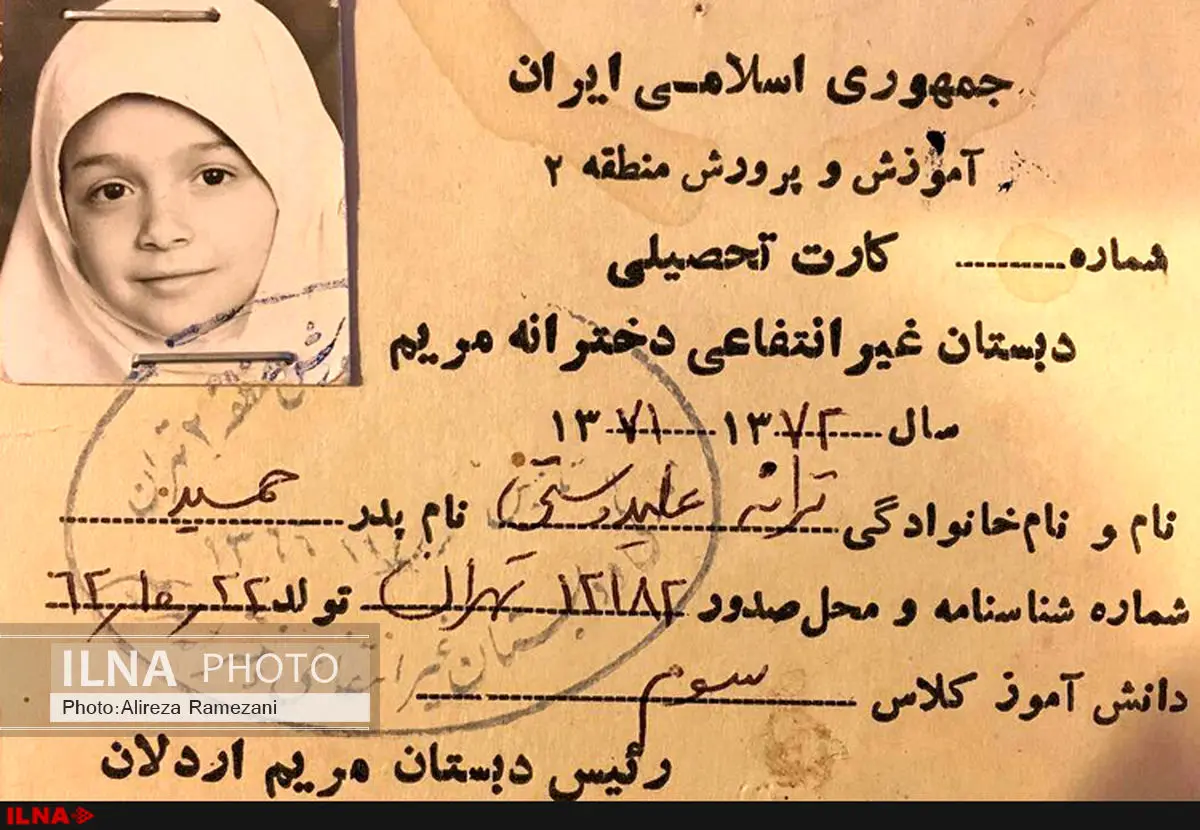 جمهوری اسلامی ایران
آموزش و پرورش منطقه ۲
شماره .......... کارت تحصیلی
دبستان غیر انتفاعی دخترانه مریم
سال ۱۳۷۲ ۱۳۷۱
نام و نام خانوادگی ترانه علیدوستی نام پدر حمید
شماره شناسنامه و محل صدور ۱۲۱۸۲ تهران تولد ۶۲
دانش آموز کلاس سوم
رئیس دبستان مریم اردلان
منطقه ۲ تهران
ILNA PHOTO
Photo:Alireza Ramezani
ILNA